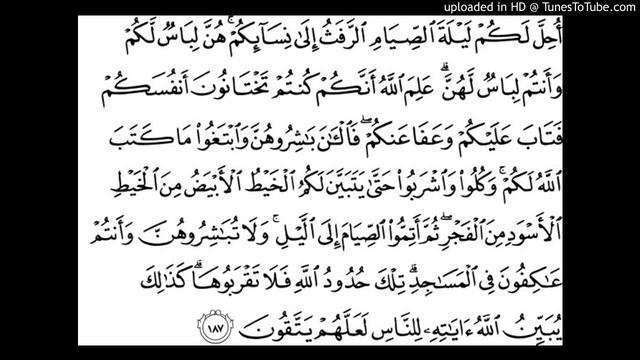 uploaded in HD @ TunesToTube.com
أُحِلَّ لَكُمْ لَيْلَةَ ٱلصِّيَامِ ٱلرَّفَثُ إِلَىٰ نِسَآئِكُمْ ۚ هُنَّ لِبَاسٌ لَّكُمْ
وَأَنتُمْ لِبَاسٌ لَّهُنَّ ۗ عَلِمَ ٱللَّهُ أَنَّكُمْ كُنتُمْ تَخْتَانُونَ أَنفُسَكُمْ
فَتَابَ عَلَيْكُمْ وَعَفَا عَنكُمْ ۖ فَٱلْـَٰٔنَ بَـٰشِرُوهُنَّ وَٱبْتَغُوا۟ مَا كَتَبَ
ٱللَّهُ لَكُمْ ۚ وَكُلُوا۟ وَٱشْرَبُوا۟ حَتَّىٰ يَتَبَيَّنَ لَكُمُ ٱلْخَيْطُ ٱلْأَبْيَضُ مِنَ ٱلْخَيْطِ
ٱلْأَسْوَدِ مِنَ ٱلْفَجْرِ ۖ ثُمَّ أَتِمُّوا۟ ٱلصِّيَامَ إِلَى ٱلَّيْلِ ۚ وَلَا تُبَـٰشِرُوهُنَّ وَأَنتُمْ
عَـٰكِفُونَ فِى ٱلْمَسَـٰجِدِ ۗ تِلْكَ حُدُودُ ٱللَّهِ فَلَا تَقْرَبُوهَا ۗ كَذَٰلِكَ
يُبَيِّنُ ٱللَّهُ ءَايَـٰتِهِۦ لِلنَّاسِ لَعَلَّهُمْ يَتَّقُونَ ١٨٧